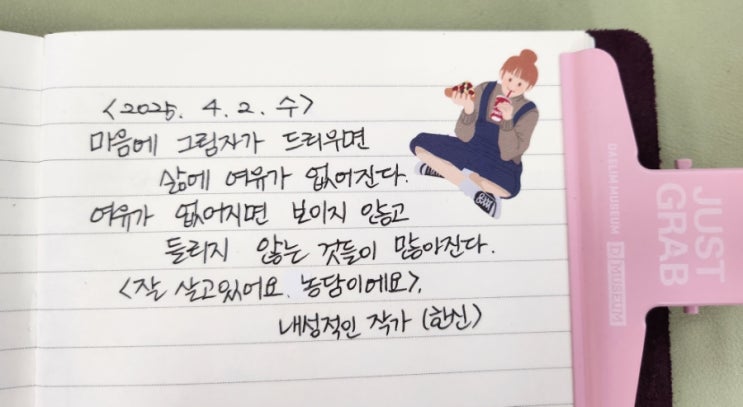 <2025. 4. 2. 수>
마음에 그림자가 드리우면
삶에 여유가 없어진다.
여유가 없어지면 보이지 않고
들리지 않는 것들이 많아진다.
<잘 살고있어요. 농담이에요>,
내성적인 작가 (한신)
JUST
GRAB
DAELIM MUSEUM D MUSEUM